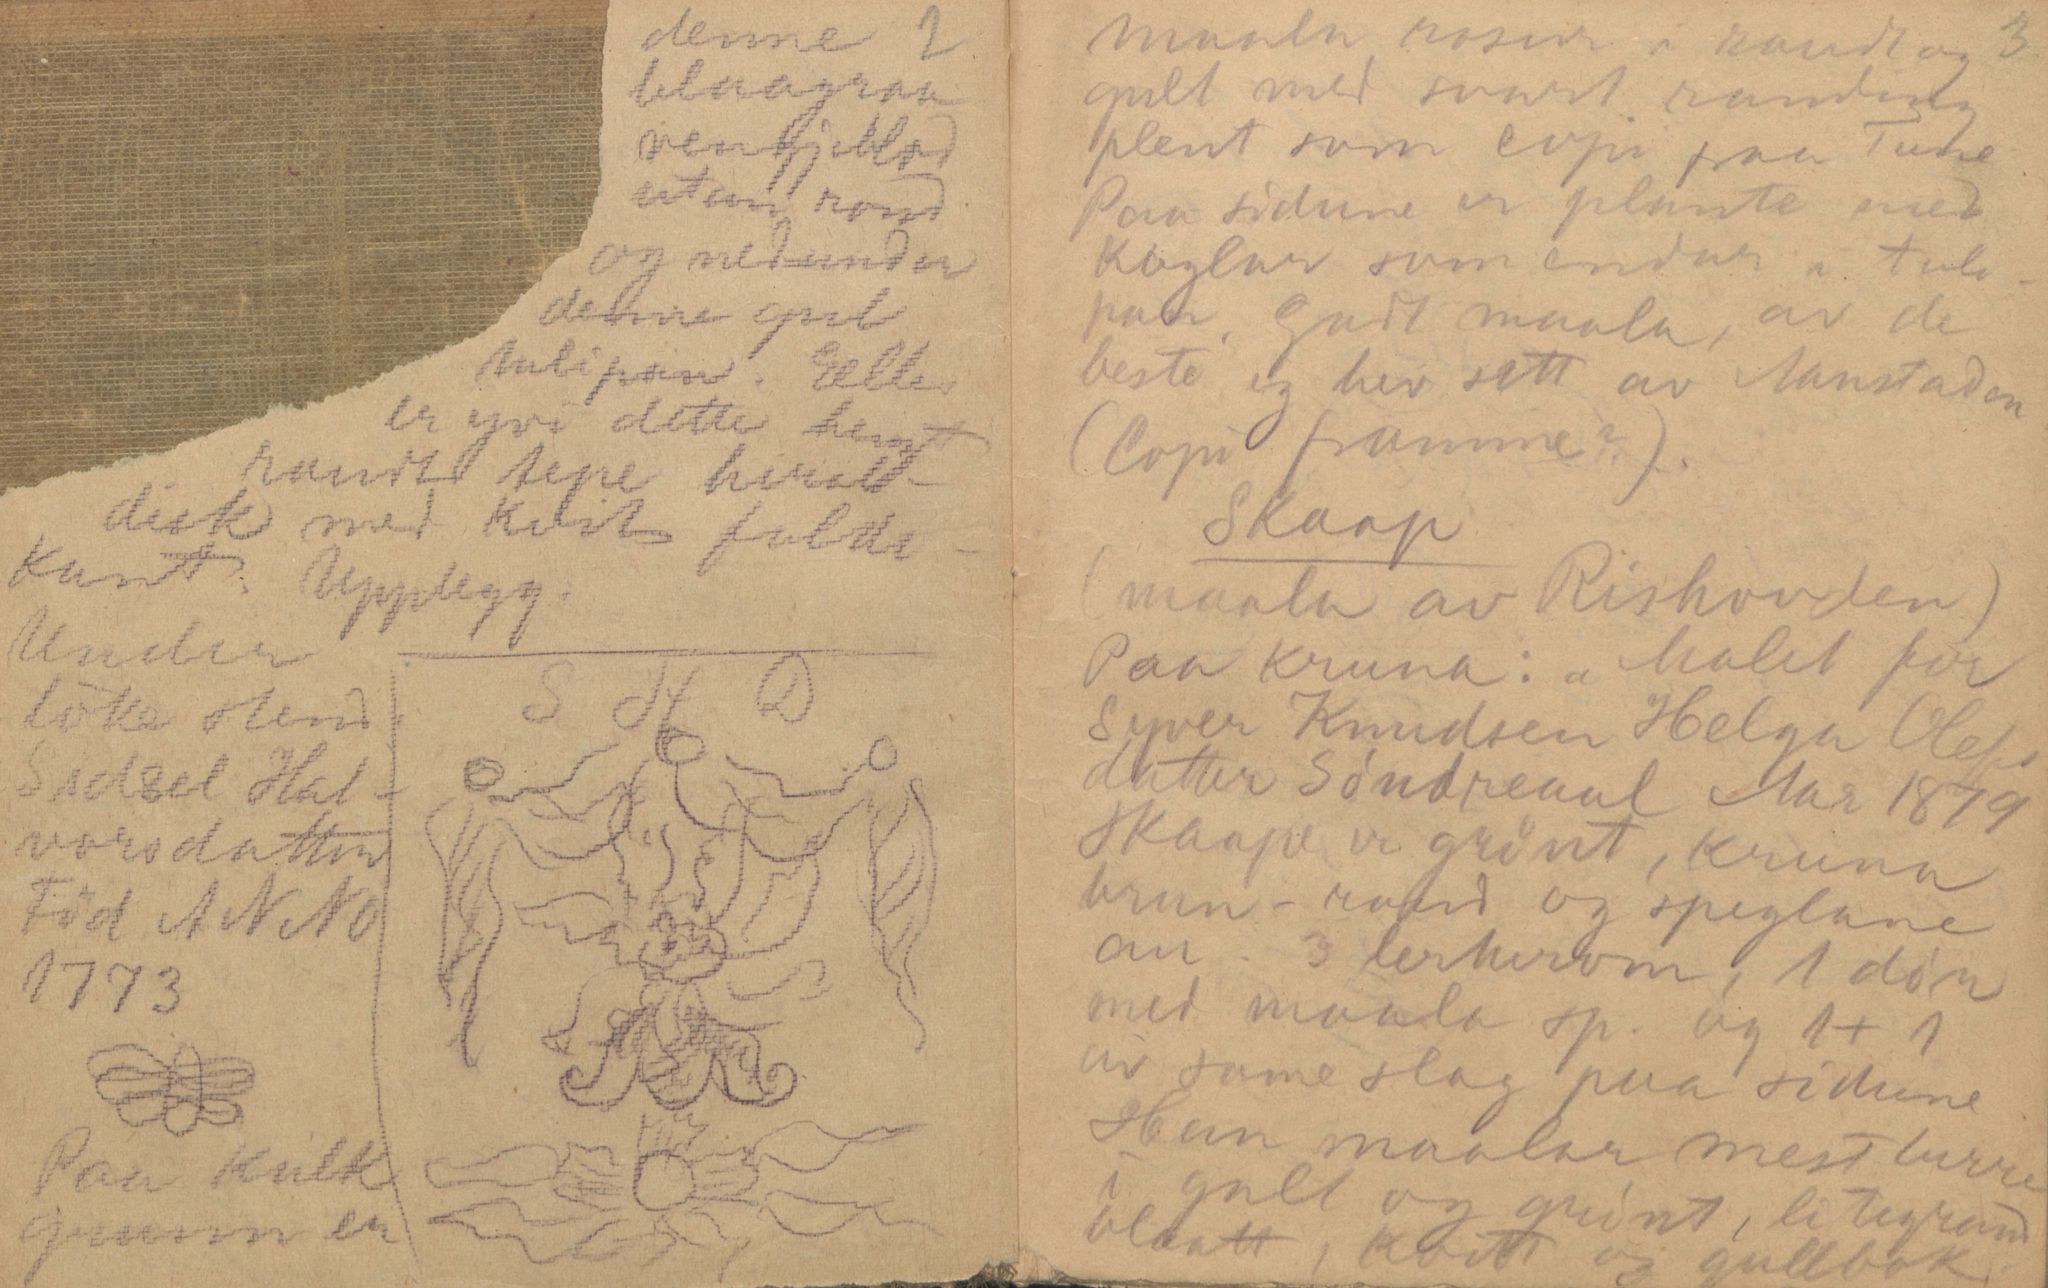 denne 2
blaagraa
vengjiblad
utan rand
og nedunder
denne gul
tulipan. Elles
er yvi dette hengt
raudt tepe herald-
disk med kvit folde-
kant. Upplegg.
Under
loke stend
Sidsel Hal-
vorsdatter
Föd ANNO
1773
Paa kulk
grunn er
S H D
3
maala rosur i raudt og
gult med svart randing
plent som copi fraa Tune
Paa sidune er plante med
Koglar som endar i tuli-
pan, godt maala, av de
beste eg hev sett av Aanstaden
(Copi framme?).
Skaap
(maala av Rishovden)
Paa kruna: " Malet for
Syver Knudsen Helga Olefs
datter Söndreaal Aar 1879
Skaape er grönt, kruna
brun-raud og speglane
au. 3 lerkerom, 1 dör
med maala sp. og 1 + 1
av same slag paa sidune
Han maalar mest turre
i gult og grönt, litegrand
blaatt, kvitt og gullbok